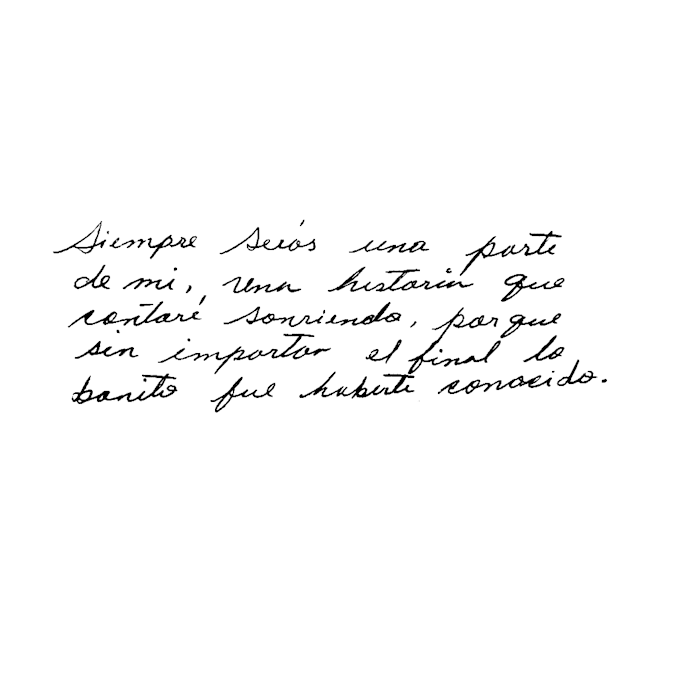 Siempre serás una parte
de mi, una historia que
contaré sonriendo, porque
sin importar el final lo
bonito fue haberte conocido.